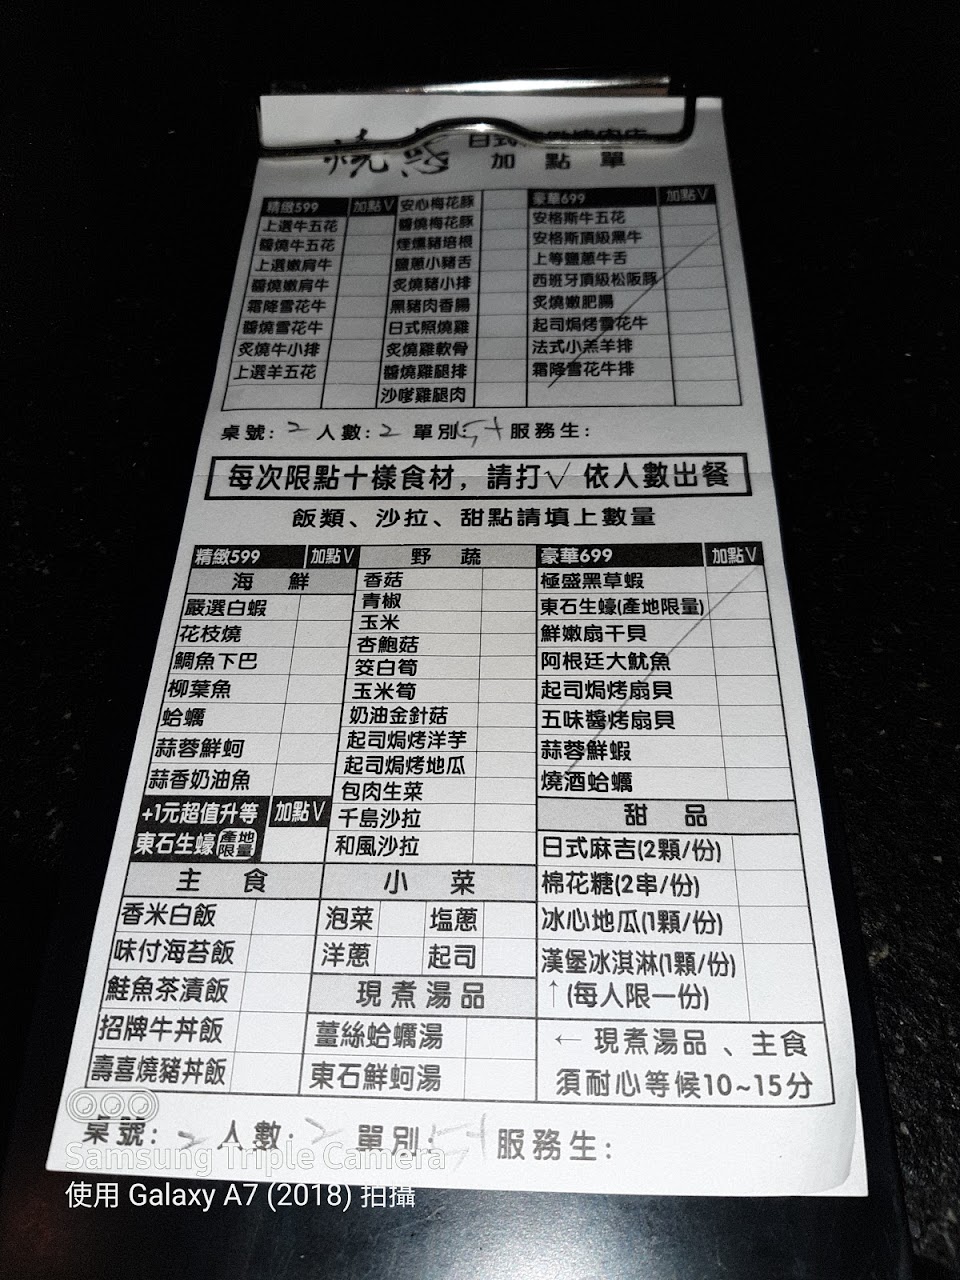 燒惑 日式
加點單
精緻599 加點V 安心梅花豚 豪華699 加點V
上選牛五花 醬燒梅花豚 安格斯牛五花
醬燒牛五花 煙燻豬培根 安格斯頂級黑牛
上選嫩肩牛 鹽蔥小豬舌 上等鹽蔥牛舌
醬燒嫩肩牛 炙燒豬小排 西班牙頂級松阪豚
霜降雪花牛 黑豬肉香腸 炙燒嫩肥腸
醬燒雪花牛 日式照燒雞 起司焗烤雪花牛
炙燒牛小排 炙燒雞軟骨 法式小羔羊排
上選羊五花 醬燒雞腿排 霜降雪花牛排
沙嗲雞腿肉
桌號: 2 人數: 2 單別: 5+ 服務生:
每次限點十樣食材，請打√ 依人數出餐
飯類、沙拉、甜點請填上數量
精緻599 加點V 野蔬 豪華699 加點V
海鮮 香菇 極盛黑草蝦
嚴選白蝦 青椒 東石生蠔(產地限量)
花枝燒 玉米 鮮嫩扇干貝
鯛魚下巴 杏鮑菇 阿根廷大魷魚
柳葉魚 筊白筍 起司焗烤扇貝
蛤蠣 玉米筍 五味醬烤扇貝
蒜蓉鮮蚵 奶油金針菇 蒜蓉鮮蝦
蒜香奶油魚 起司焗烤洋芋 燒酒蛤蠣
起司焗烤地瓜
+1元超值升等 加點V 包肉生菜 甜品
東石生蠔 產地限量 千島沙拉 日式麻吉(2顆/份)
和風沙拉
主食 小菜 棉花糖(2串/份)
香米白飯 泡菜 塩蔥 冰心地瓜(1顆/份)
味付海苔飯 洋蔥 起司 漢堡冰淇淋(1顆/份)
鮭魚茶漬飯 現煮湯品 ↑(每人限一份)
招牌牛丼飯 薑絲蛤蠣湯 ← 現煮湯品、主食
壽喜燒豬丼飯 東石鮮蚵湯 須耐心等候10~15分
桌號: 2 人數: 2 單別: 5+ 服務生:
Samsung Triple Camera
使用 Galaxy A7 (2018) 拍攝